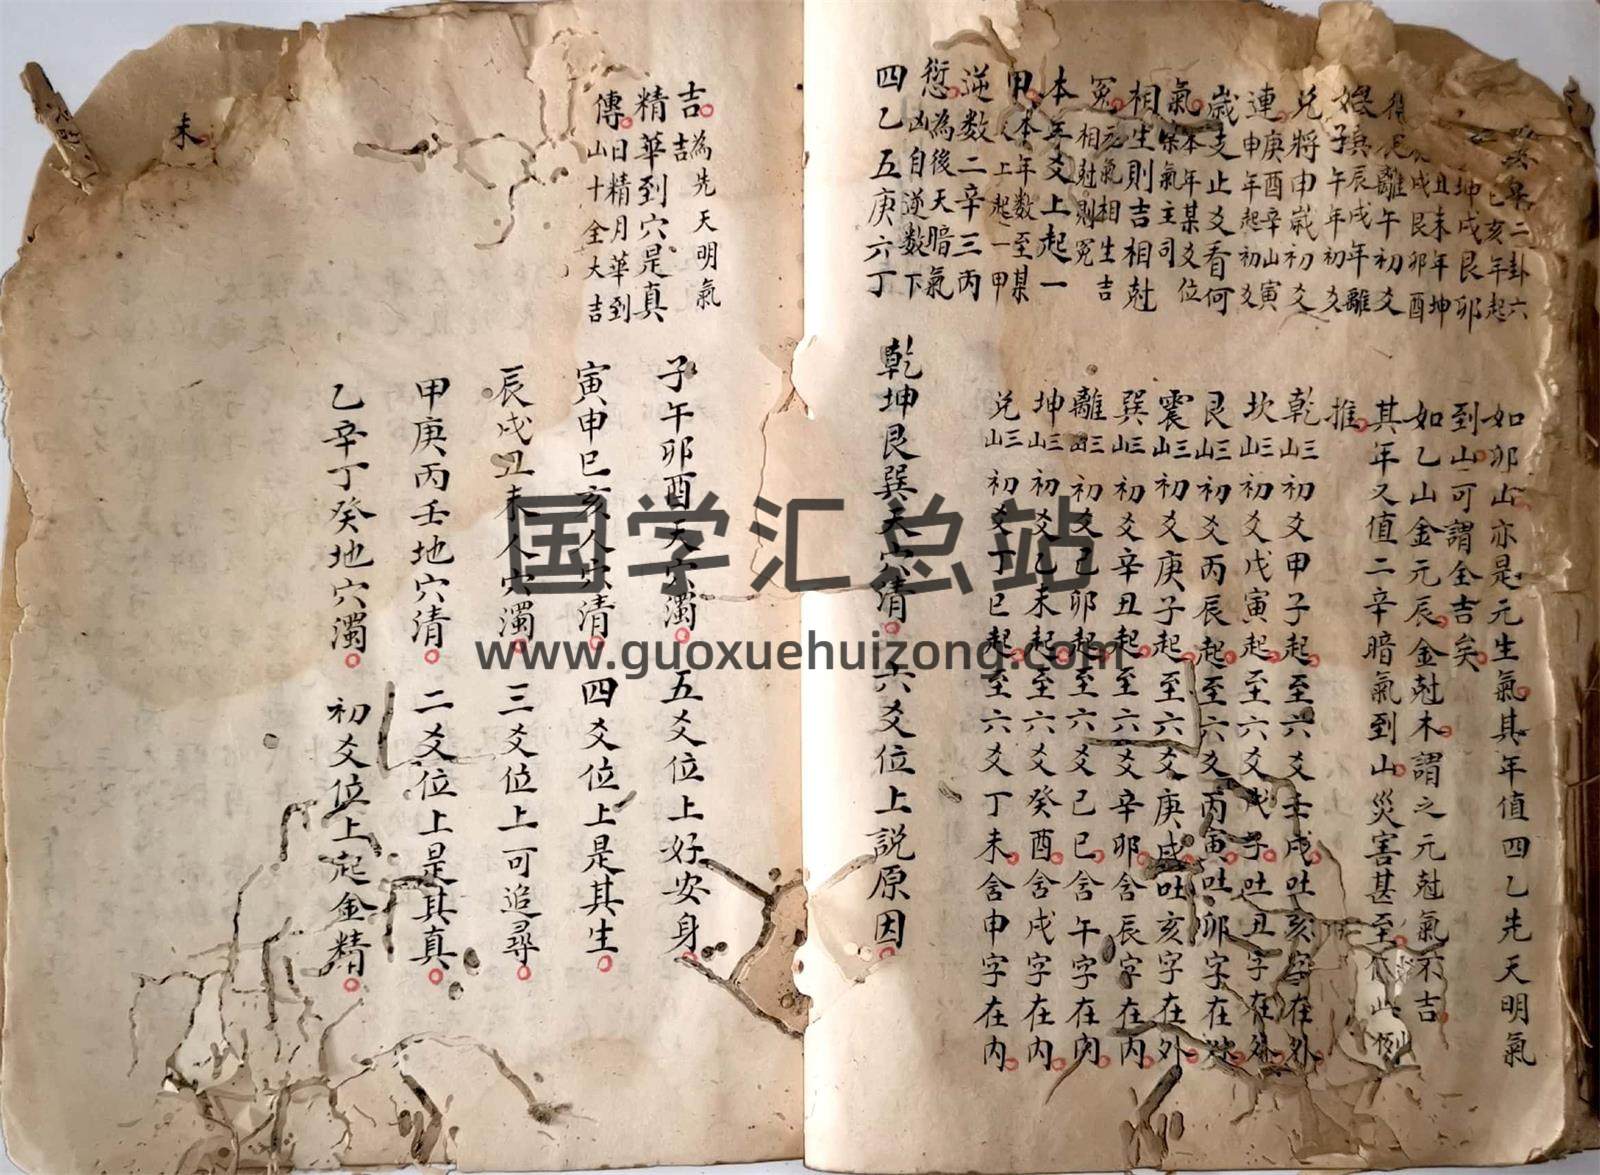 如卯山亦是元生氣其年值四乙先天明氣
到山可謂全吉矣
如乙山金元辰金尅木謂之元尅氣不吉
其年又值二辛暗氣到山災害甚至
推
乾三山初爻甲子起至六爻壬戌吐亥字在外
坎三山初爻戊寅起至六爻戊子吐丑字在外
艮三山初爻丙辰起至六爻丙寅吐卯字在
震三山初爻庚子起至六爻庚戌吐亥字在外
巽三山初爻辛丑起至六爻辛卯含辰字在內
離三山初爻己卯起至六爻己巳含午字在內
坤三山初爻乙未起至六爻癸酉含戌字在內
兌三山初爻丁巳起至六爻丁未含申字在內
兌將申歲初爻
連庚酉辛山寅申年起初爻
歲支止爻看何
氣本年某爻位氣主司
相生則吉相尅
冤元氣相生吉相尅則冤
本年爻上起一
甲本年数至某上起一甲
逆数二辛三丙
愆為後天暗氣凶自逆数下
四乙五庚六丁
乾坤艮巽天穴清六爻位上説原因
吉為先天明氣吉
精華到穴是真
傳日精月華到山十全大吉
子午卯酉天穴濁五爻位上好安身
寅申巳亥人穴清四爻位上是其生
辰戌丑未人穴濁三爻位上可追尋
甲庚丙壬地穴清二爻位上是其真
乙辛丁癸地穴濁初爻位上起金精
未
国学汇总站
www.guoxuehuizong.com